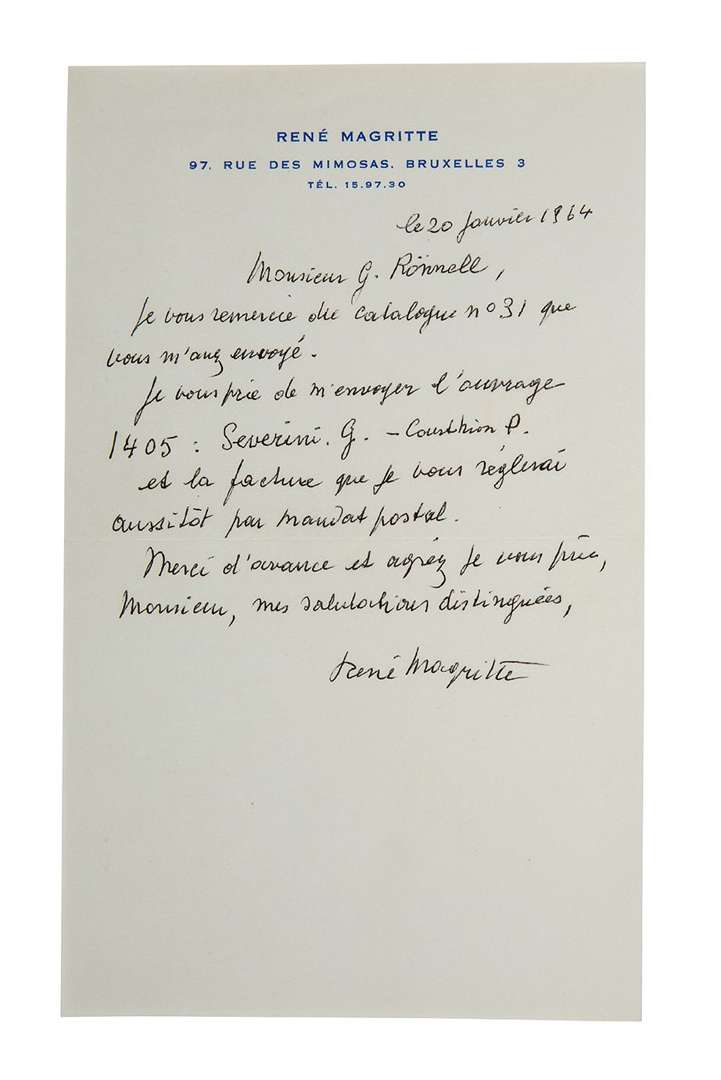 RENÉ MAGRITTE
97, RUE DES MIMOSAS. BRUXELLES 3
TÉL. 15.97.30
le 20 Janvier 1964
Monsieur G. Rönnell,
Je vous remercie du catalogue n° 31 que
vous m'avez envoyé.
Je vous prie de m'envoyer l'ouvrage
1405 : Severini. G. – Courthion P.
et la facture que je vous réglerai
aussitôt par mandat postal.
Merci d'avance et agréez je vous prie,
Monsieur, mes salutations distinguées,
René Magritte